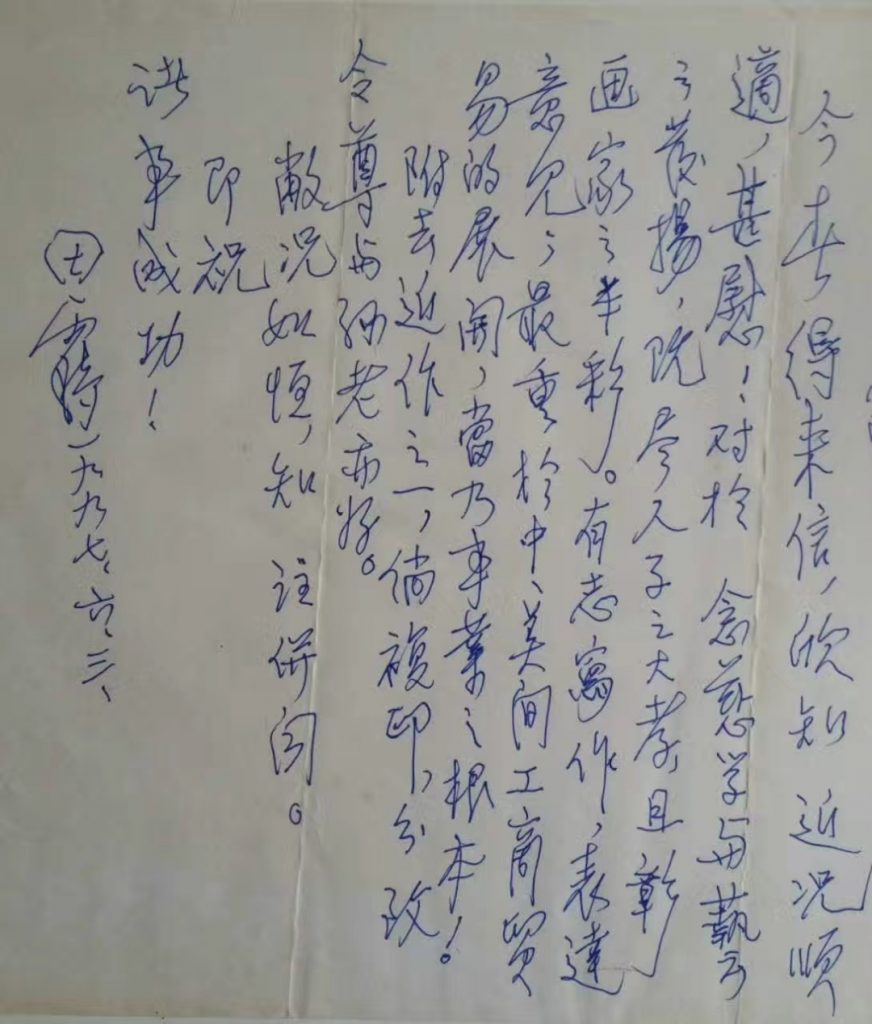 今春得来信，欣知 近况順
適，甚慰！对於 念慈学与藝
之发揚，既尽人子之大孝，且彰
画家之丰彩。有志寫作，表達
意见；最重於中、美间工商貿
易的展開，當乃事業之根本！
附去近作之一，倘複印，分致
令尊与老亦好。
敝况如恒，知 注併闻。
即祝
諸事成功！
一九九七、六、三、